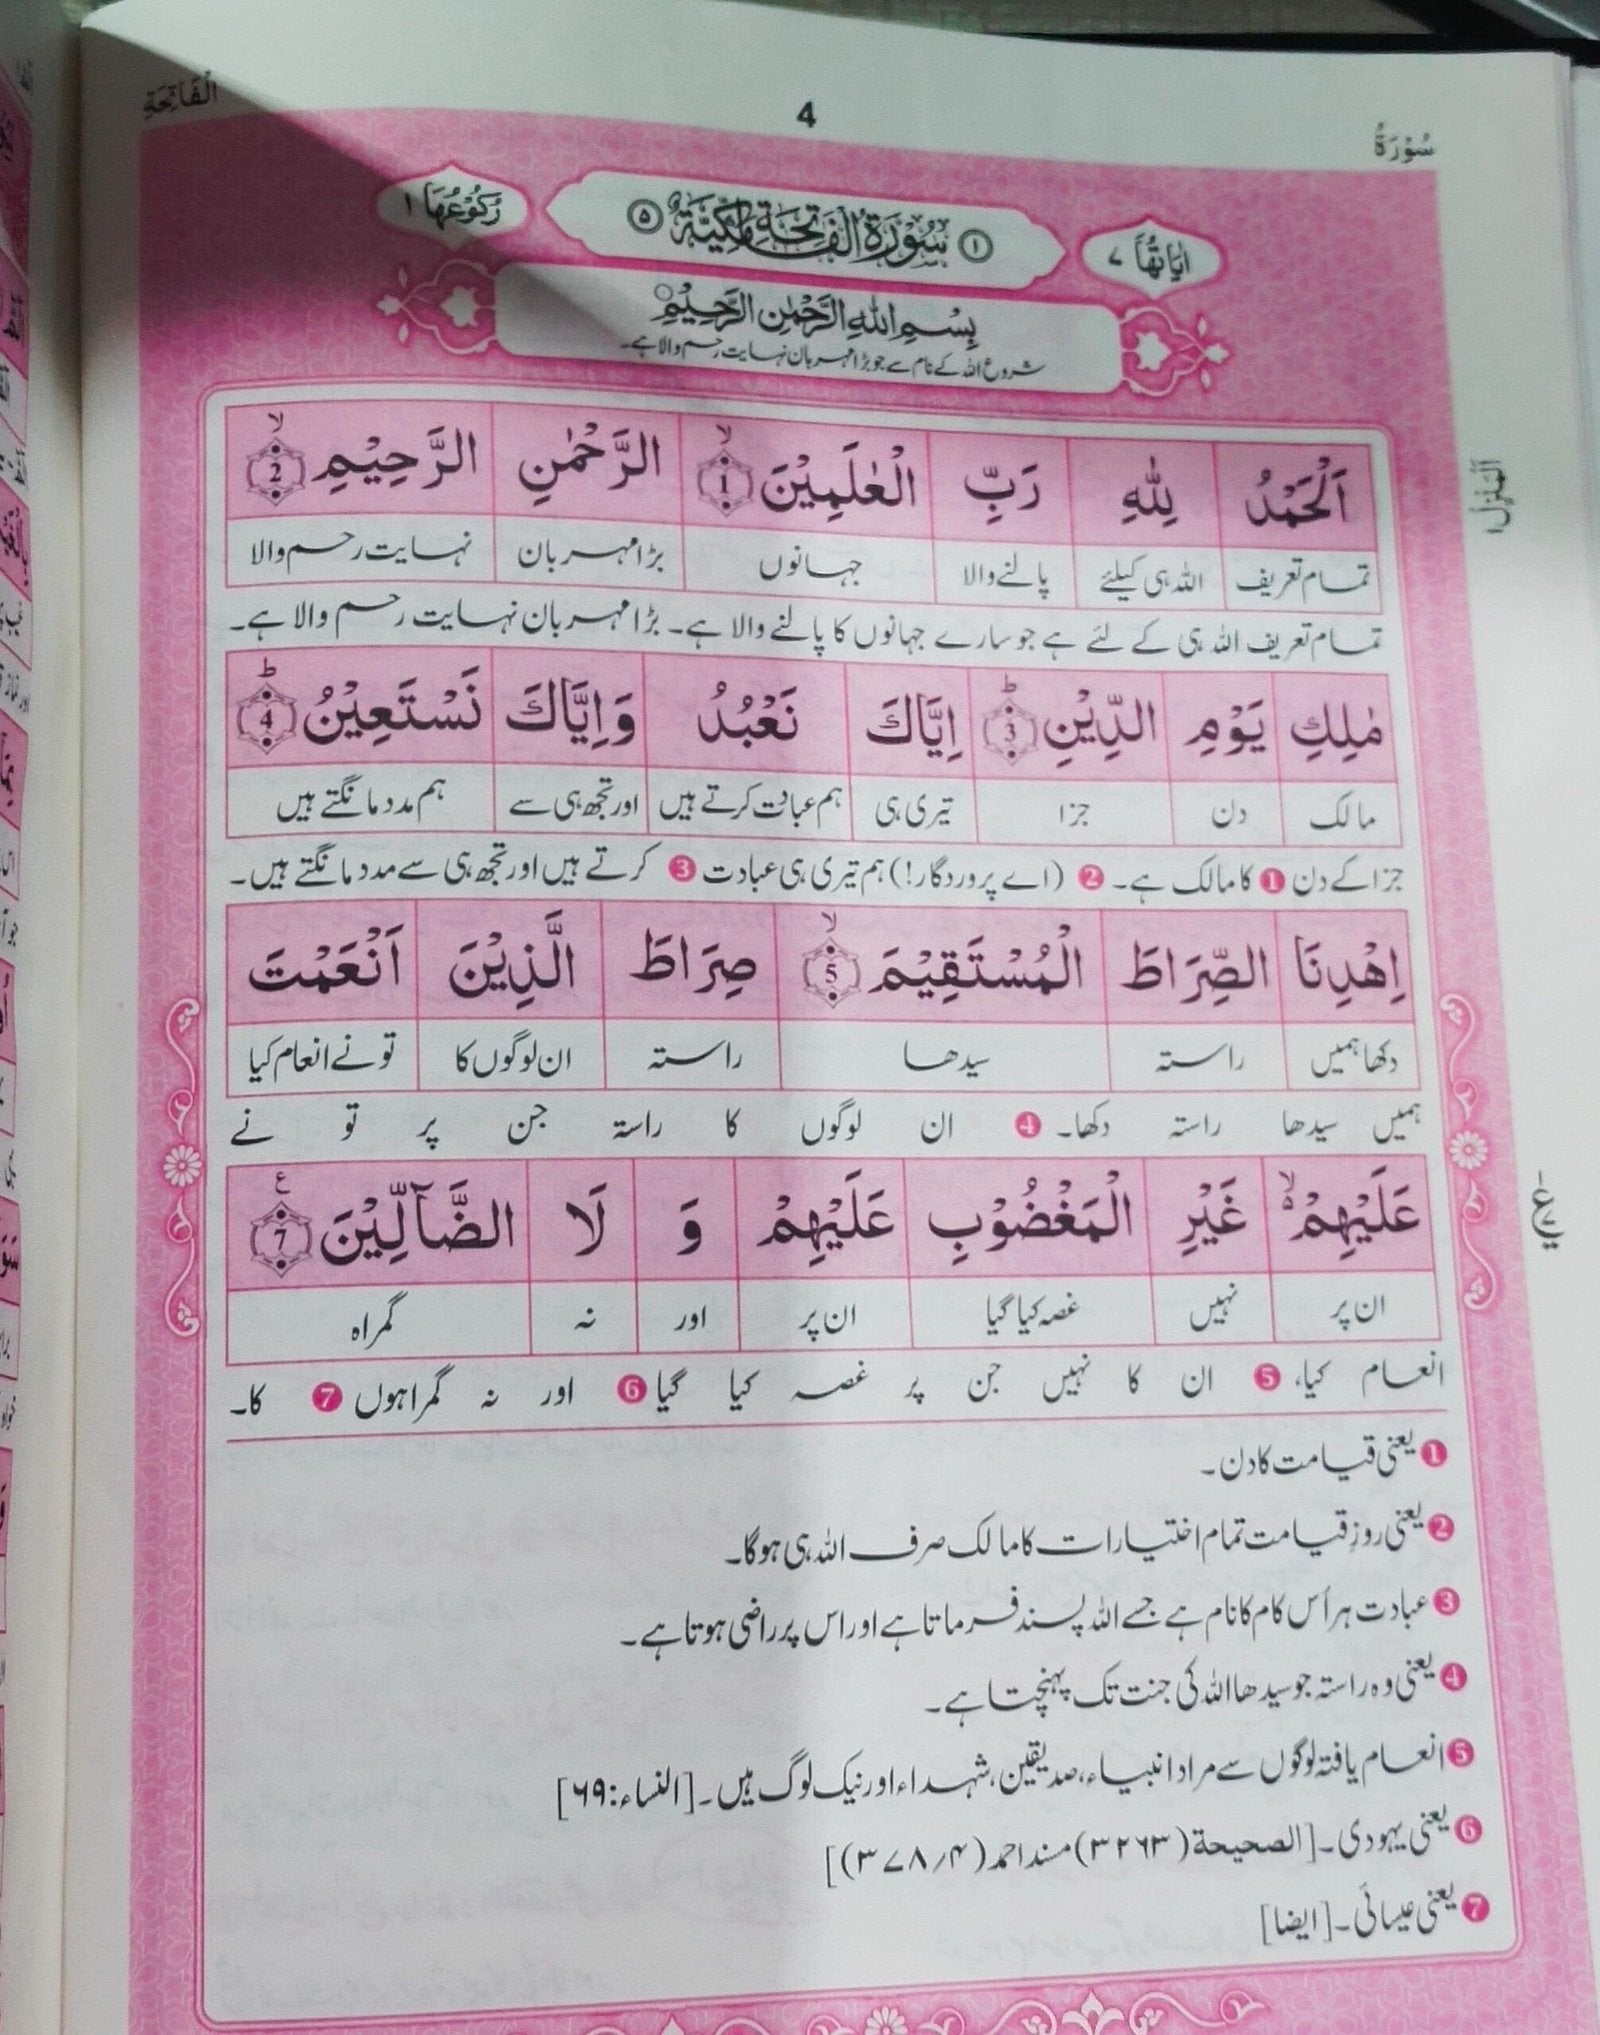 سُوْرَةُ 4 اَلْفَاتِحَةِ
اٰيَاتُهَا ٧ ﴿١﴾ سُوْرَةُ الْفَاتِحَةِ مَكِّيَّةٌ ﴿٥﴾ رُكُوْعُهَا ١
بِسْمِ اللّٰهِ الرَّحْمٰنِ الرَّحِيْمِ
شروع اللہ کے نام سے جو بڑا مہربان نہایت رحم والا ہے۔
اَلْمَنْزِل ١
اَلْحَمْدُ لِلّٰهِ رَبِّ الْعٰلَمِيْنَ ۙ 1 الرَّحْمٰنِ الرَّحِيْمِ ۙ 2
تمام تعریف اللہ ہی کیلئے پالنے والا جہانوں بڑا مہربان نہایت رحم والا
تمام تعریف اللہ ہی کے لئے ہے جو سارے جہانوں کا پالنے والا ہے۔ بڑا مہربان نہایت رحم والا ہے۔
مٰلِكِ يَوْمِ الدِّيْنِ ؕ 3 اِيَّاكَ نَعْبُدُ وَاِيَّاكَ نَسْتَعِيْنُ ؕ 4
مالک دن جزا تیری ہی ہم عبادت کرتے ہیں اور تجھ ہی سے ہم مدد مانگتے ہیں
جزا کے دن ❶ کا مالک ہے۔ ❷ (اے پروردگار!) ہم تیری ہی عبادت ❸ کرتے ہیں اور تجھ ہی سے مدد مانگتے ہیں۔
اِهْدِنَا الصِّرَاطَ الْمُسْتَقِيْمَ ۙ 5 صِرَاطَ الَّذِيْنَ اَنْعَمْتَ
دکھا ہمیں راستہ سیدھا راستہ ان لوگوں کا تو نے انعام کیا
ہمیں سیدھا راستہ دکھا۔ ❹ ان لوگوں کا راستہ جن پر تو نے
عَلَيْهِمْ ۙ۬ غَيْرِ الْمَغْضُوْبِ عَلَيْهِمْ وَ لَا الضَّآلِّيْنَ ع 7
ان پر نہیں غصہ کیا گیا ان پر اور نہ گمراہ
انعام کیا، ❺ ان کا نہیں جن پر غصہ کیا گیا ❻ اور نہ گمراہوں ❼ کا۔
❶ یعنی قیامت کا دن۔
❷ یعنی روزِ قیامت تمام اختیارات کا مالک صرف اللہ ہی ہوگا۔
❸ عبادت ہر اُس کام کا نام ہے جسے اللہ پسند فرماتا ہے اور اس پر راضی ہوتا ہے۔
❹ یعنی وہ راستہ جو سیدھا اللہ کی جنت تک پہنچتا ہے۔
❺ انعام یافتہ لوگوں سے مراد انبیاء، صدیقین، شہداء اور نیک لوگ ہیں۔ [النساء: ٦٩]
❻ یعنی یہودی۔ [الصحیحة (٣٢٦٣) مسند احمد (٤/٣٧٨)]
❼ یعنی عیسائی۔ [ایضا]